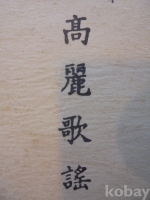 高麗歌謠
kobay